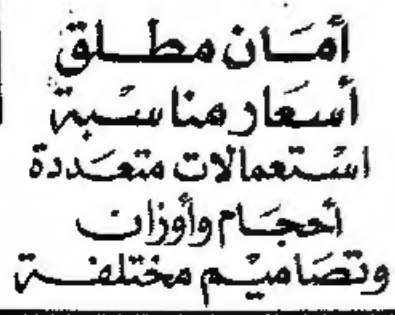 أمان مطلق
أسعار مناسبة
استعمالات متعددة
أحجام وأوزان
وتصاميم مختلفة